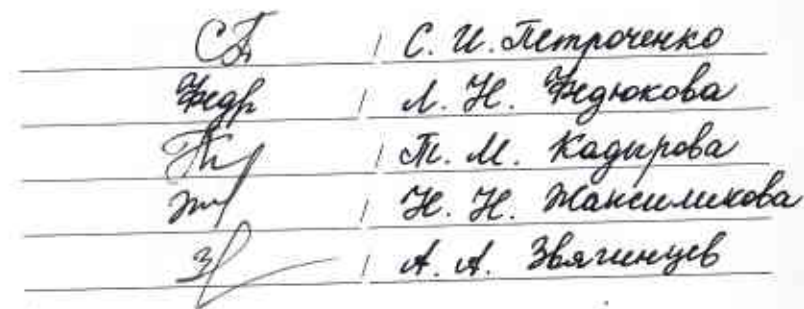 / С. И. Петроченко
/ Л. Н. Федюкова
/ Т. М. Кадырова
/ Н. Н. Максимикова
/ А. А. Звягинцев